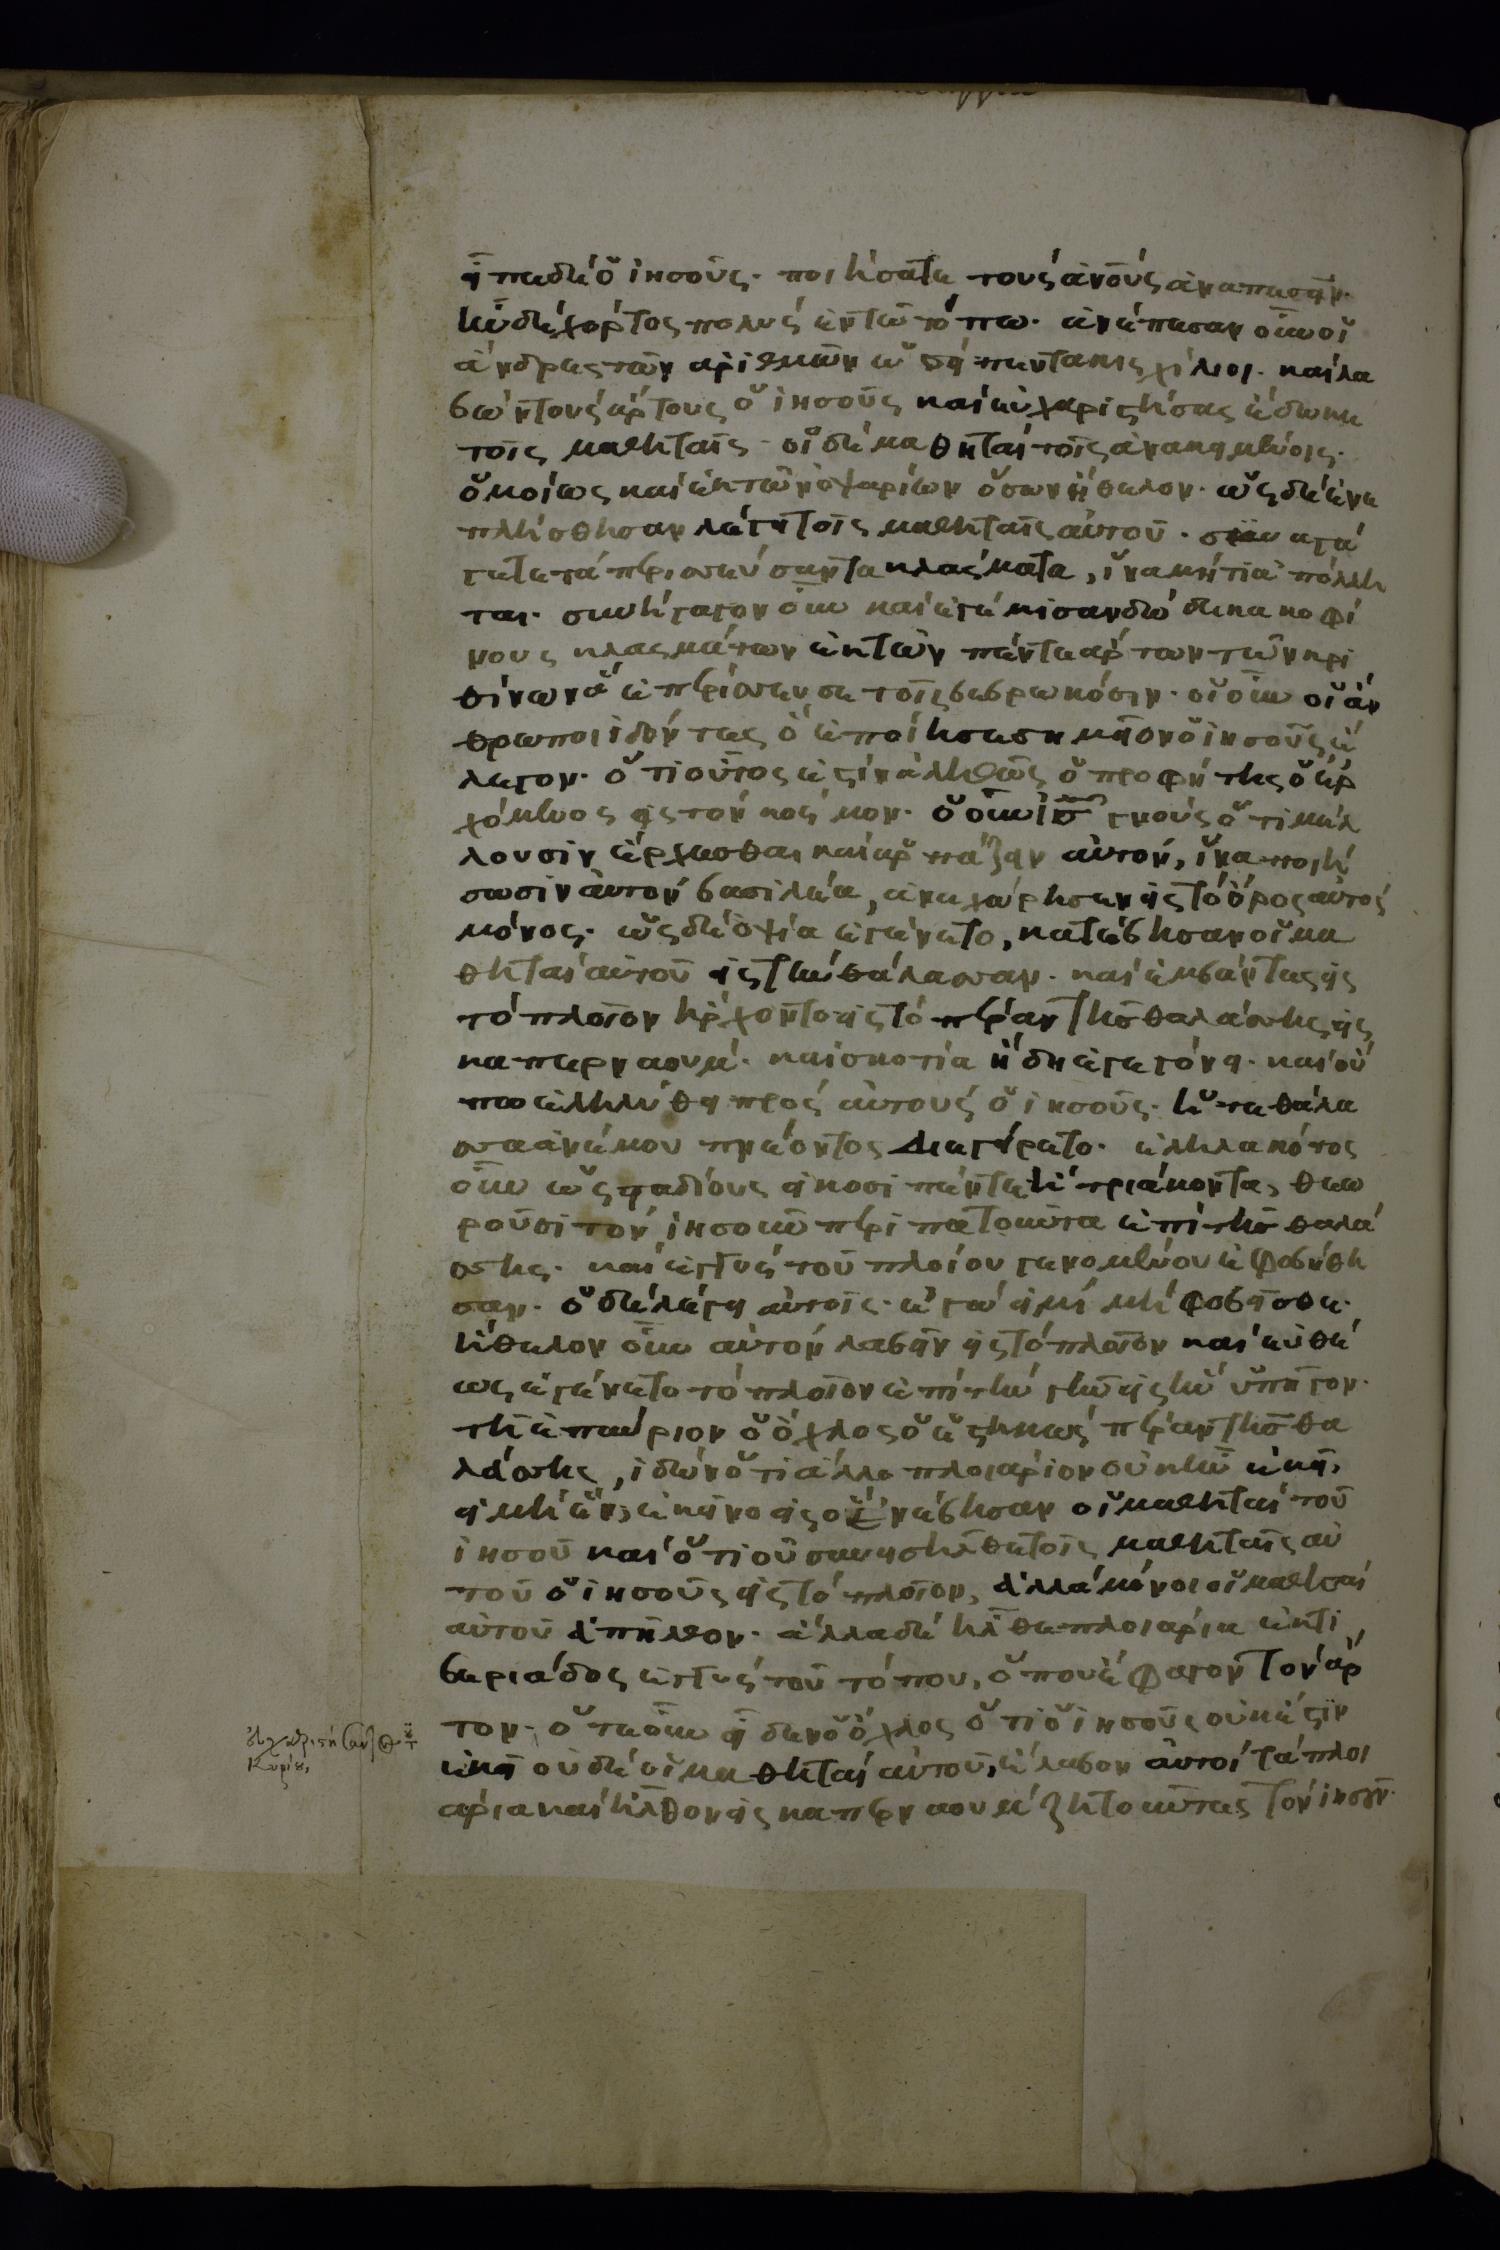 εἶπε δὲ ὁ ἰησοῦς· ποιήσατε τοὺς ἀνοὺς ἀναπεσεῖν·
ἦν δὲ χόρτος πολὺς ἐν τῶ τόπω· ἀνέπεσαν οὖν οἱ
ἄνδρες τὸν ἀριθμὸν ὡσεὶ πεντακισχίλιοι· καὶ λα
βὼν τοὺς ἄρτους ὁ ἰησοῦς καὶ εὐχαριστήσας ἔδωκε
τοῖς μαθηταῖς· οἱ δὲ μαθηταὶ τοῖς ἀνακειμένοις·
ὁμοίως καὶ ἐκ τῶν ὀψαρίων ὅσον ἤθελον· ὡς δὲ ἐνε
πλήσθησαν λέγει τοῖς μαθηταῖς αὐτοῦ· συναγά
γετε τὰ περισσεύσαντα κλάσματα, ἵνα μή τι ἀπόλλη
ται· συνήγαγον οὖν καὶ ἐγέμισαν δώδεκα κοφί
νους κλασμάτων ἐκ τῶν πέντε ἄρτων τῶν κρι
θίνων ἃ ἐπερίσσευσε τοῖς βεβρωκόσιν· οἱ οὖν οἱ ἄν
θρωποι ἰδόντες ὃ ἐποίησε σημεῖον ὁ ἰησοῦς ἔ
λεγον· ὅτι οὗτος ἐστὶν ἀληθῶς ὁ προφήτης ὁ ἐρ
χόμενος εἰς τὸν κόσμον· ὁ οὖν ις γνοὺς ὅτι μέλ
λουσιν ἔρχεσθαι καὶ ἁρπάζειν αὐτόν, ἵνα ποιή
σωσιν αὐτὸν βασιλέα, ἀνεχώρησεν εἰς τὸ ὄρος αὐτὸς
μόνος· ὡς δὲ ὀψία ἐγένετο, κατέβησαν οἱ μα
θηταὶ αὐτοῦ εἰς τὴν θάλασσαν· καὶ ἐμβάντες εἰς
τὸ πλοῖον ἤρχοντο εἰς τὸ πέραν τῆς θαλάσσης εἰς
καπερναούμ· καὶ σκοτία ἤδη ἐγεγόνει· καὶ οὐ
πω ἐληλύθει πρὸς αὐτοὺς ὁ ἰησοῦς· ἥ τε θάλα
σσα ἀνέμου πνέοντος διεγείρετο· ἐληλακότες
οὖν ὡς σταδίους εἴκοσι πέντε ἢ τριάκοντα, θεω
ροῦσι τὸν ἰησοῦν περιπατοῦντα ἐπὶ τῆς θαλά
σσης· καὶ ἐγγὺς τοῦ πλοίου γενομένου ἐφοβήθη
σαν· ὁ δὲ λέγει αὐτοῖς· ἐγώ εἰμι μὴ φοβεῖσθε·
ἤθελον οὖν αὐτὸν λαβεῖν εἰς τὸ πλοῖον καὶ εὐθέ
ως ἐγένετο τὸ πλοῖον ἐπὶ τὴν γῆν εἰς ἣν ὑπῆγον·
τῆ ἐπαύριον ὁ ὄχλος ὁ ἑστηκὼς πέραν τῆς θα
λάσσης, ἰδὼν ὅτι ἄλλο πλοιάριον οὐκ ἦν ἐκεῖ,
εἰ μὴ ἓν, ἐκεῖνο εἰς ὃ ἐνέβησαν οἱ μαθηταὶ τοῦ
ἰησοῦ καὶ ὅτι οὐ συνεισῆλθε τοῖς μαθηταῖς αὐ
τοῦ ὁ ἰησοῦς εἰς τὸ πλοῖον, ἀλλὰ μόνοι οἱ μαθηταὶ
αὐτοῦ ἀπῆλθον· ἄλλα δὲ ἦλθε πλοιάρια ἐκ τι
βεριάδος ἐγγὺς τοῦ τόπου, ὅπου ἔφαγον τὸν ἄρ
τον· ὅτε οὖν εἶδεν ὁ ὄχλος ὅτι ὁ ἰησοῦς οὐκ ἔστιν
ἐκεῖ οὐδὲ οἱ μαθηταὶ αὐτοῦ, ἔλαβον αὐτοὶ τὰ πλοι
άρια καὶ ἦλθον εἰς καπερναοὺμ ζητοῦντες τὸν ἰησοῦν·